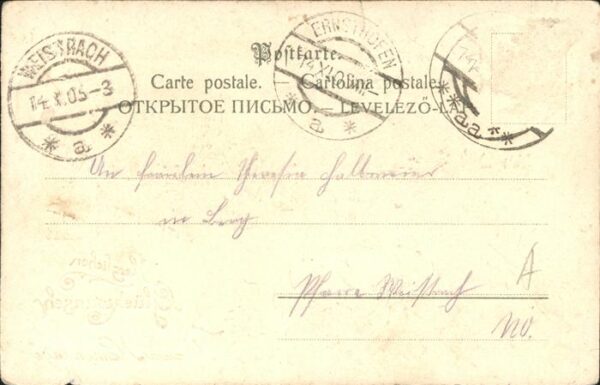 WEISTRACH
14.X.05-3
* a *
ERNSTHOFEN
14.XI
* a *
Postkarte.
Carte postale. — Cartolina postale.
ОТКРЫТОЕ ПИСЬМО. — LEVELEZŐ-L
**aa**
An Fräulein Theresia
in Berg
Pfarre Weistrach
A
NÖ.